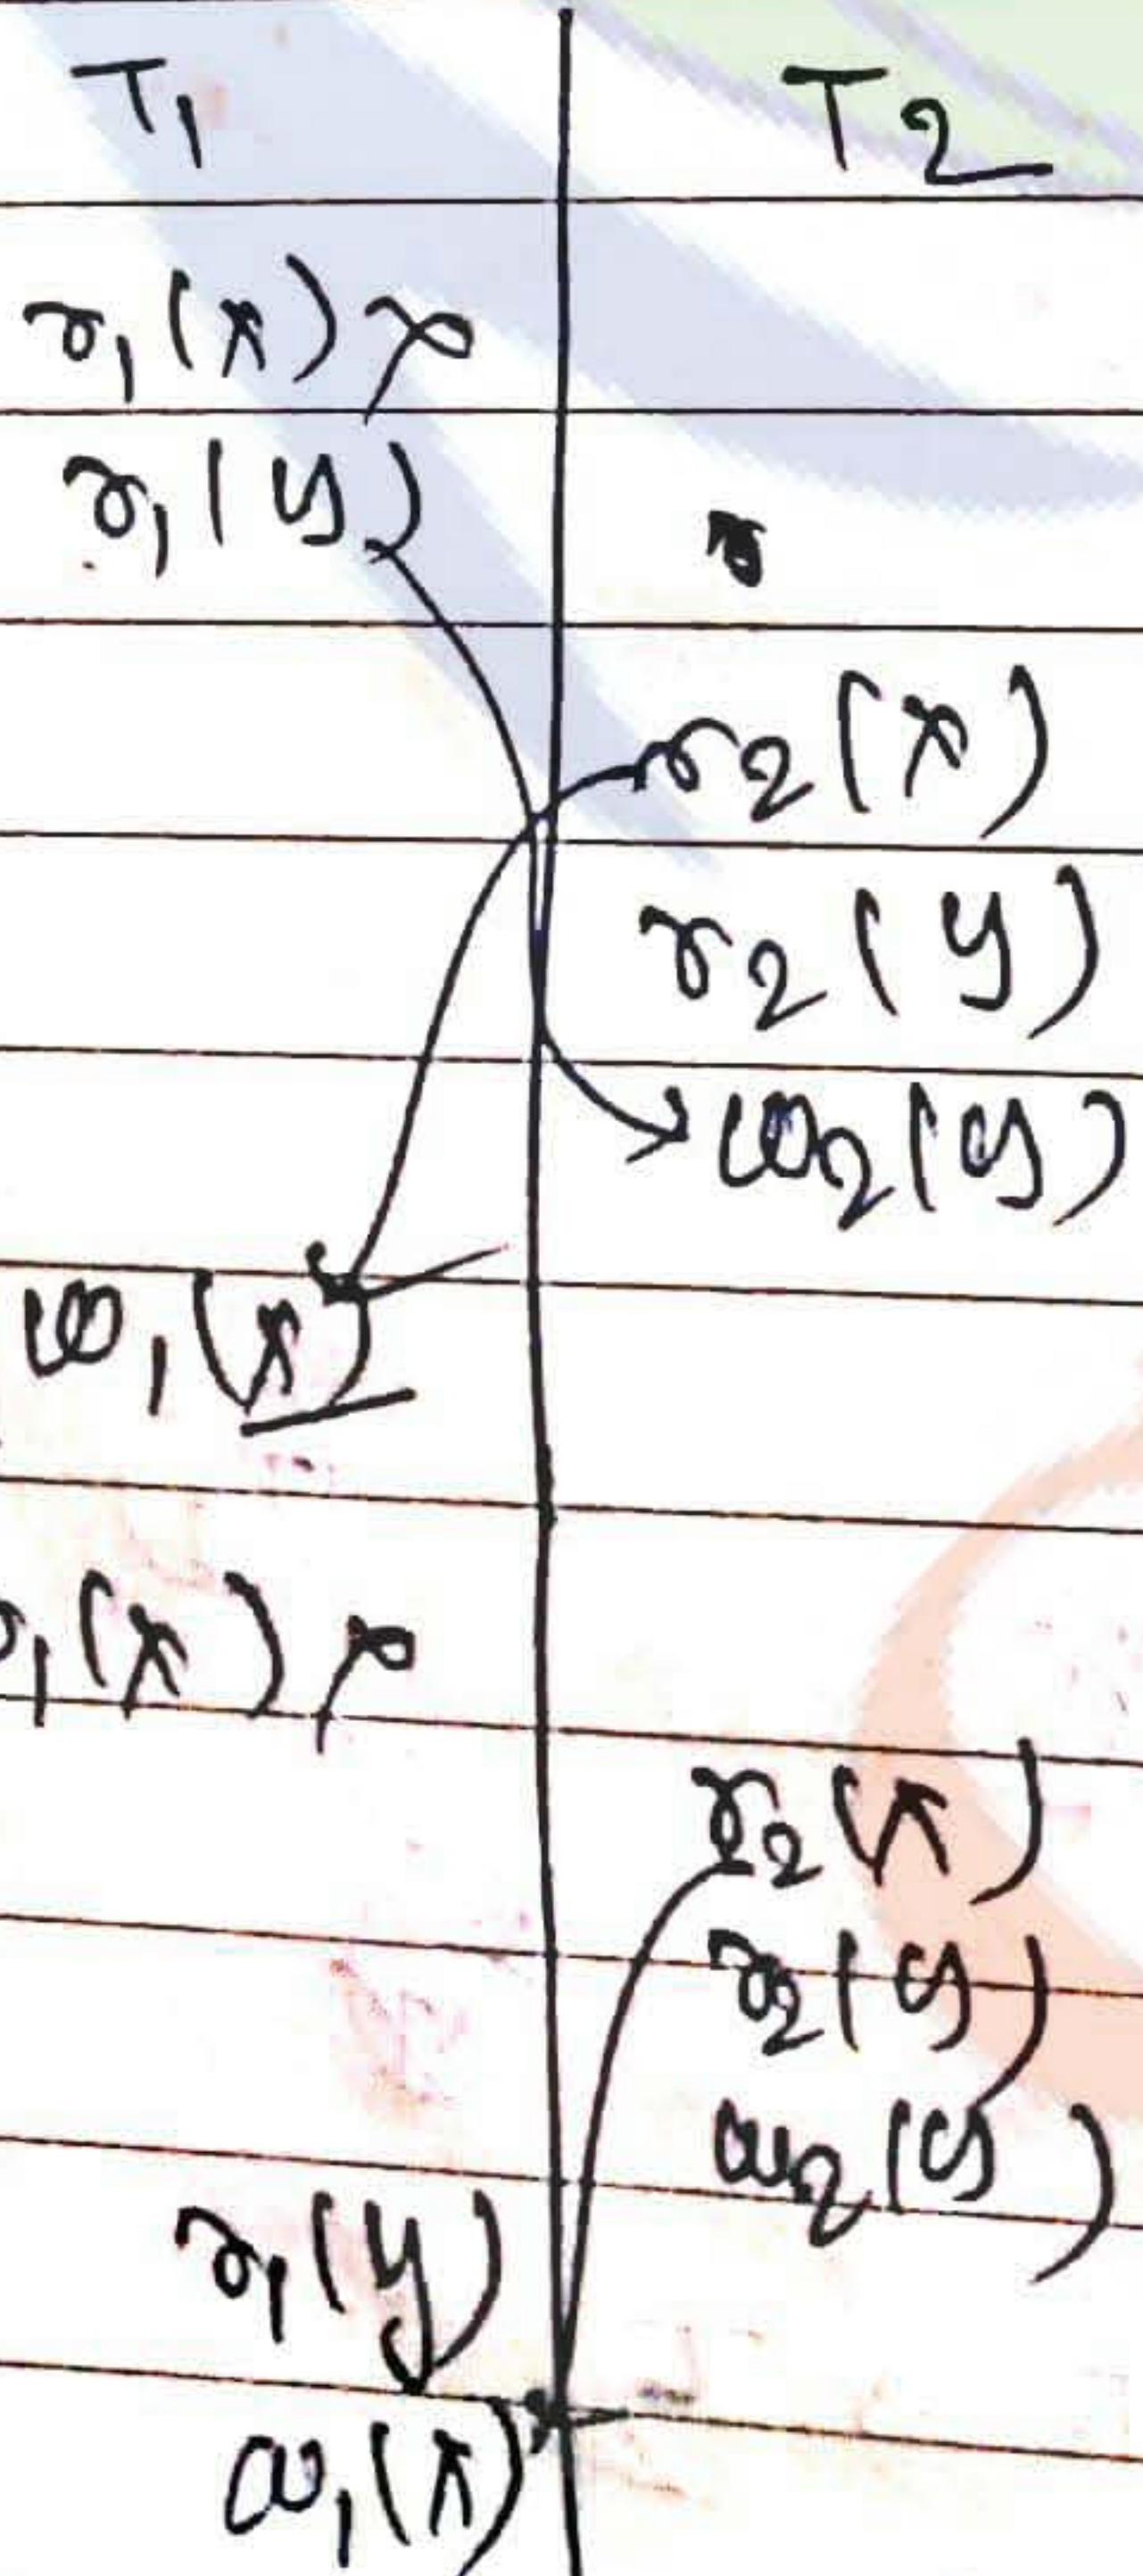 T1 T2
r1(x)
r1(y)
r2(x)
r2(y)
w2(y)
w1(x)
r1(x)
r2(x)
r2(y)
w2(y)
r1(y)
w1(x)